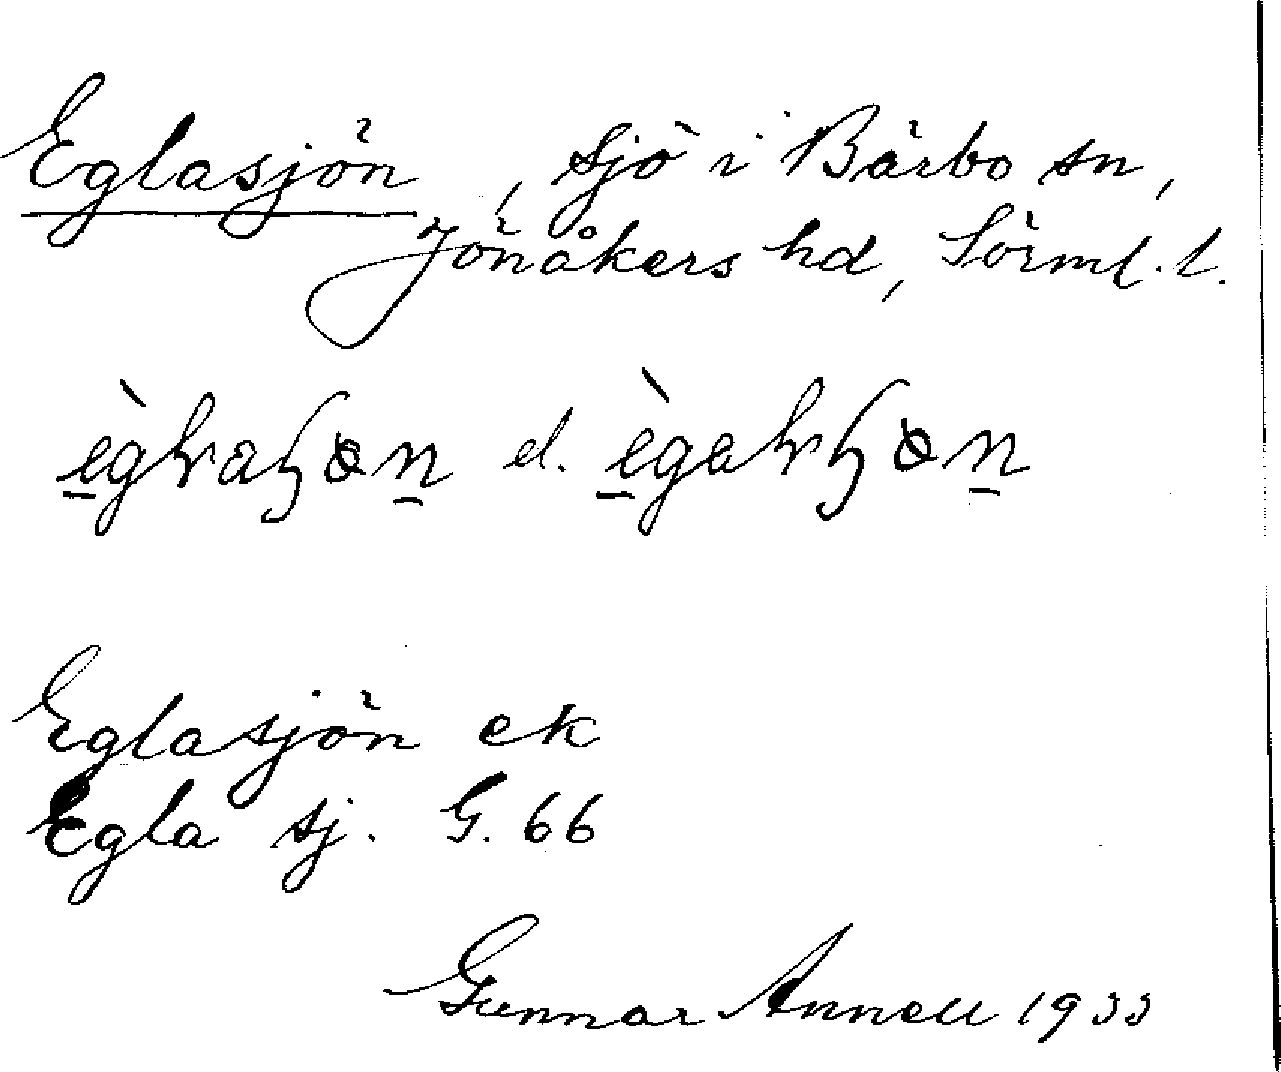 Eglasjön, sjö i Bärbo sn,
Jönåkers hd, Sörml. l.
el.
Eglasjön ek
Egla sj. G. 66
Gunnar Annell 1933